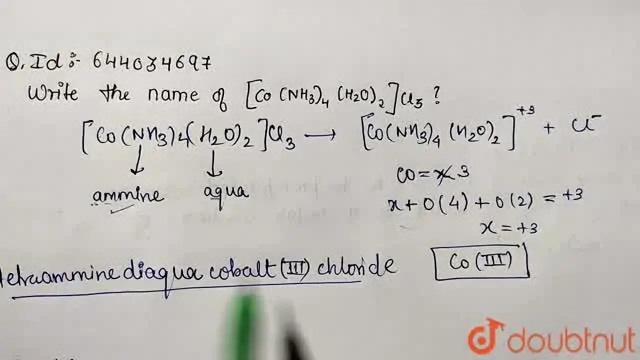 Q. Id:- 644034697
Write the name of [Co(NH3)4(H2O)2]Cl3?
[Co(NH3)4(H2O)2]Cl3 → [Co(NH3)4(H2O)2]+3 + Cl-
ammine aqua
CO = x 3
x+0(4)+0(2) = +3
x = +3
tetraamminediaqua cobalt (III) chloride
Co(III)
doubtnut